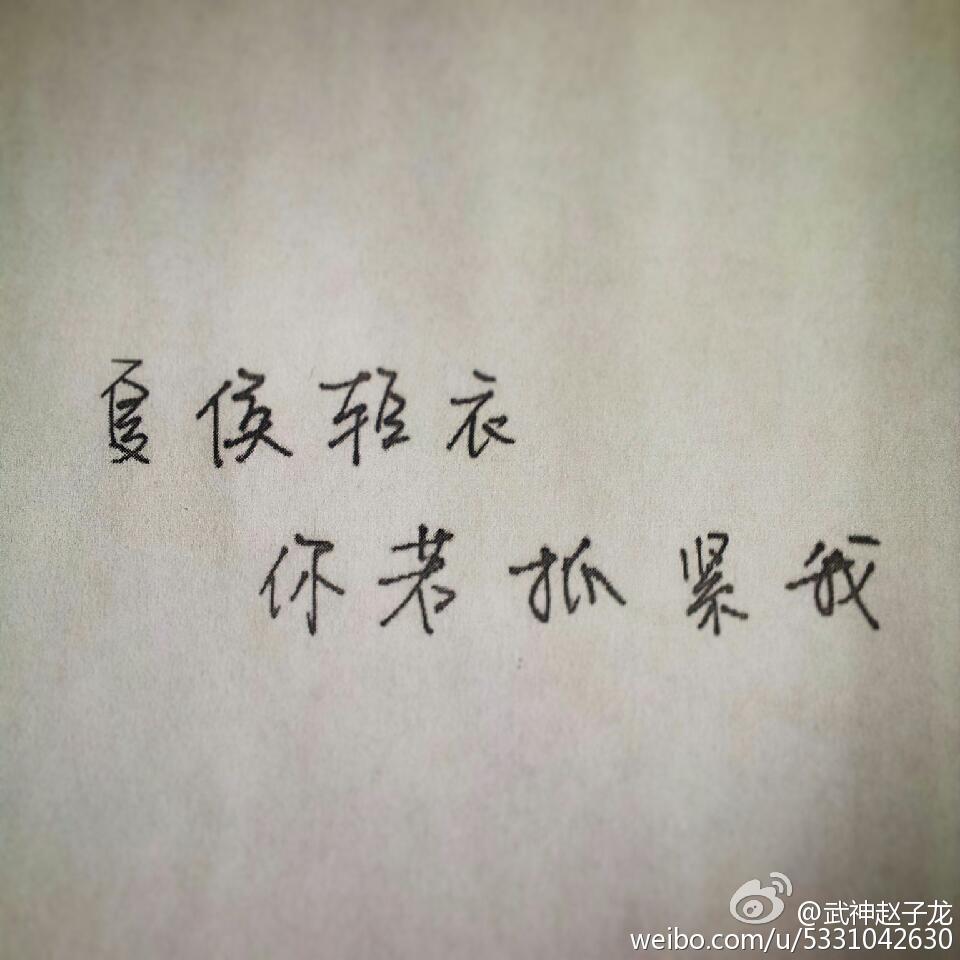 夏侯轻衣
你若抓紧我
@武神赵子龙
weibo.com/u/5331042630